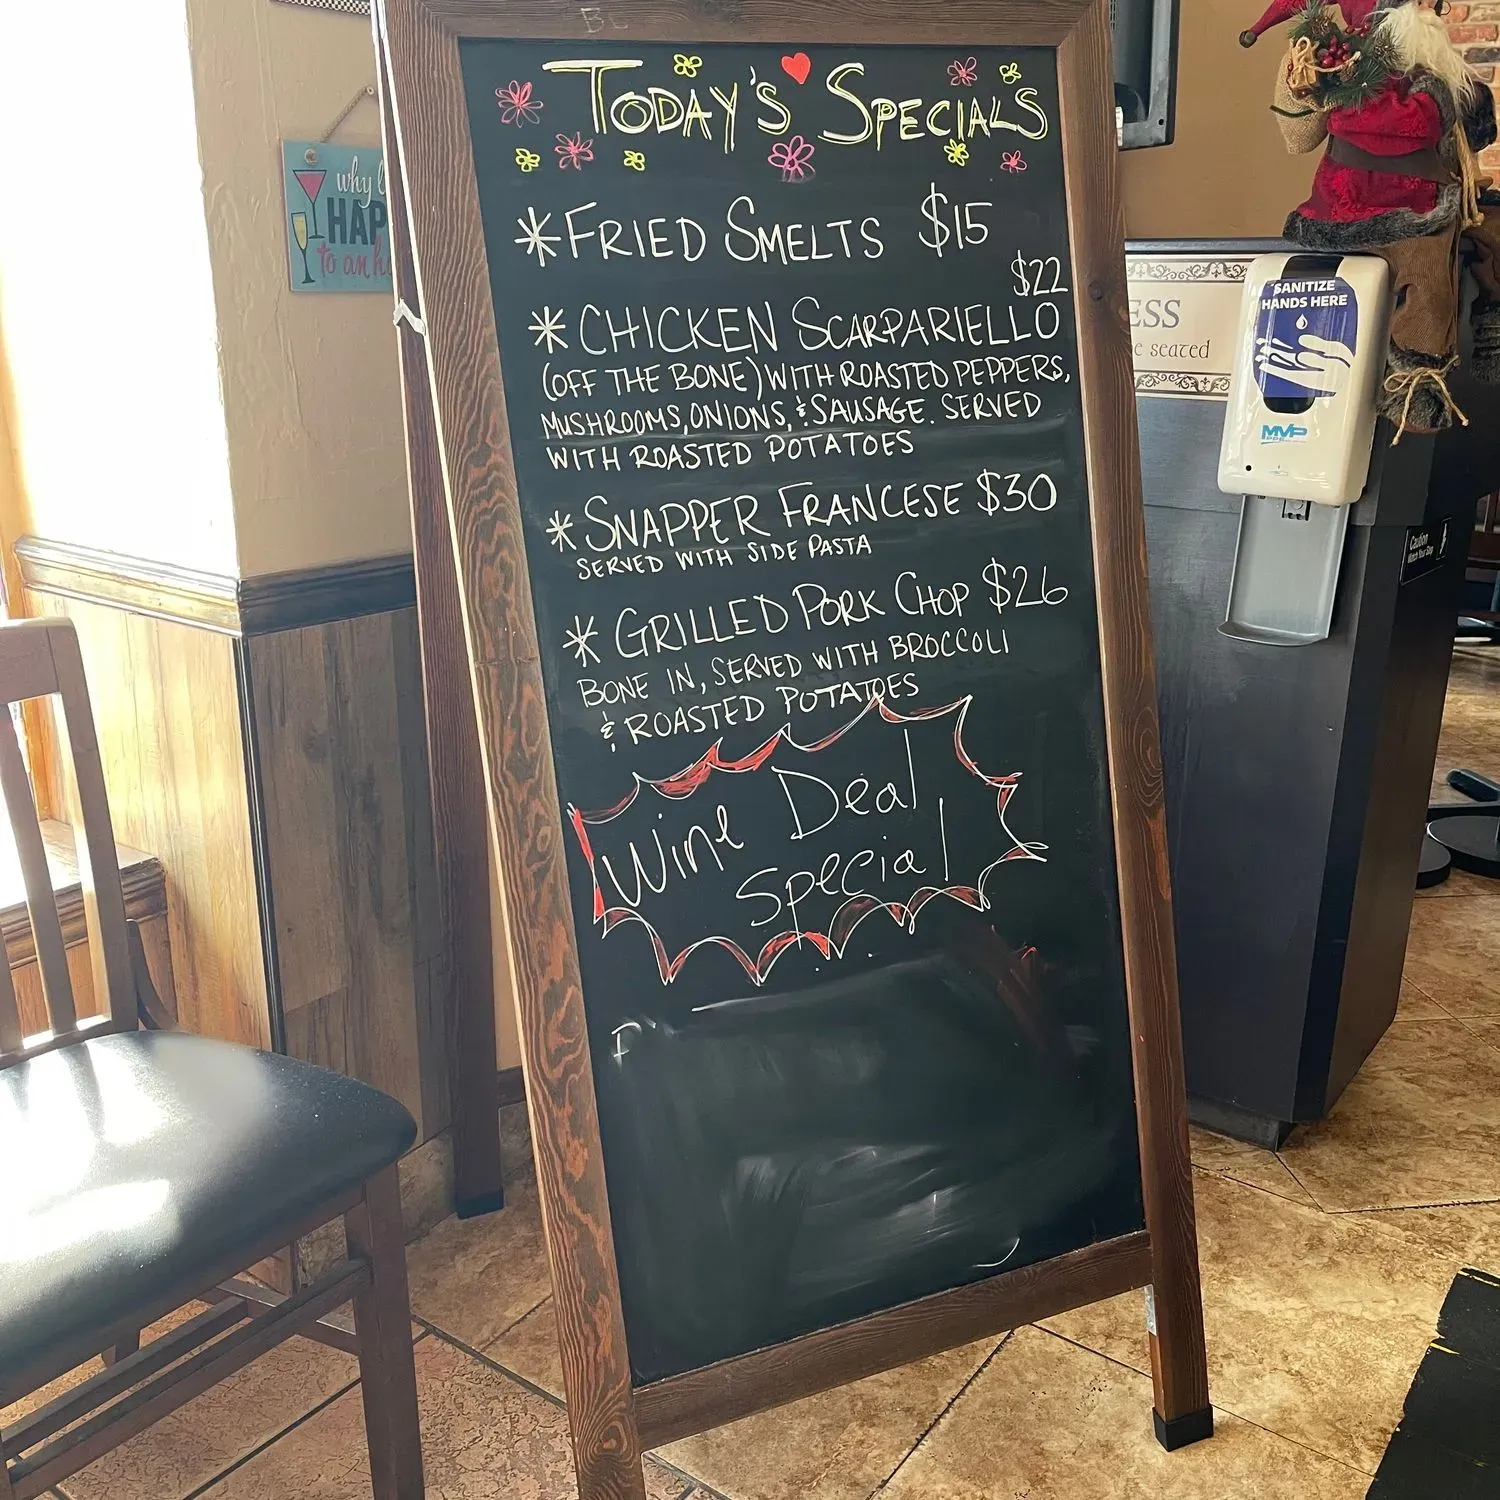 TODAY'S SPECIALS
*FRIED SMELTS $15
$22
*CHICKEN SCARPARIELLO
(OFF THE BONE) WITH ROASTED PEPPERS,
MUSHROOMS, ONIONS, & SAUSAGE. SERVED
WITH ROASTED POTATOES
*SNAPPER FRANCESE $30
SERVED WITH SIDE PASTA
*GRILLED PORK CHOP $26
BONE IN, SERVED WITH BROCCOLI
& ROASTED POTATOES
Wine Deal
Special
why
HAP
to an h
ESS
e seated
SANITIZE
HANDS HERE
MVP
Caution
Watch Your Step